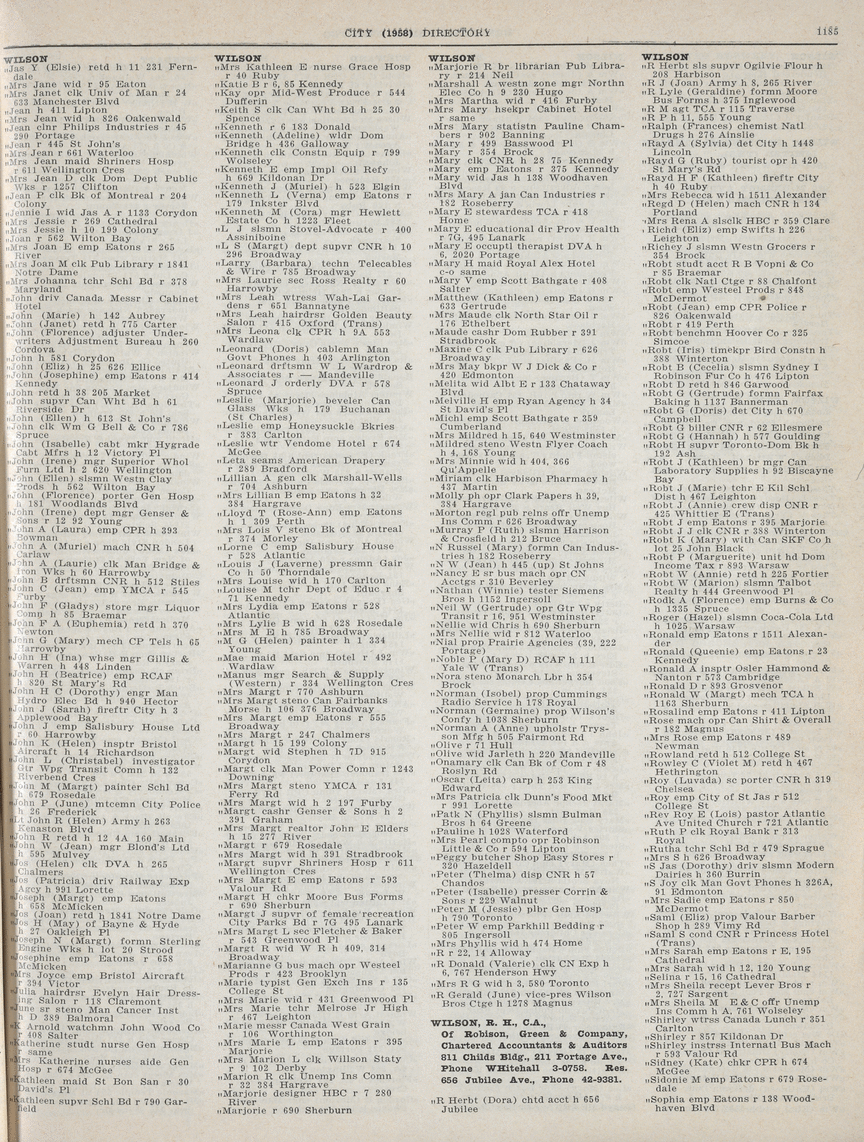 CITY (1958) DIRECTORY
1185
WILSON
„Jas Y (Elsie) retd h 11 231 Fern-
dale
„Mrs Jane wid r 95 Eaton
„Mrs Janet clk Univ of Man r 24
633 Manchester Blvd
„Jean h 411 Lipton
„Mrs Jean wid h 826 Oakenwald
„Jean clnr Philips Industries r 45
290 Portage
„Jean r 445 St John's
„Mrs Jean r 661 Waterloo
„Mrs Jean maid Shriners Hosp
r 611 Wellington Cres
„Mrs Jean D clk Dom Dept Public
Wks r 1257 Clifton
„Jean P clk Bk of Montreal r 204
Colony
„Jennie I wid Jas A r 1133 Corydon
„Mrs Jessie r 269 Cathedral
„Mrs Jessie h 10 199 Colony
„Joan r 562 Wilton Bay
„Mrs Joan E emp Eatons r 265
River
„Mrs Joan M clk Pub Library r 1841
Notre Dame
„Mrs Johanna tchr Schl Bd r 378
Maryland
„John driv Canada Messr r Cabinet
Hotel
„John (Marie) h 142 Aubrey
„John (Janet) retd h 775 Carter
„John (Florence) adjuster Under-
writers Adjustment Bureau h 260
Cordova
„John h 581 Corydon
„John (Eliz) h 25 626 Ellice
„John (Josephine) emp Eatons r 414
Kennedy
„John retd h 38 205 Market
„John supvr Can Wht Bd h 61
Riverside Dr
„John (Ellen) h 613 St John's
„John clk Wm G Bell & Co r 786
Spruce
„John (Isabelle) cabt mkr Hygrade
Cabt Mfrs h 12 Victory Pl
„John (Irene) mgr Superior Whol
Furn Ltd h 2 620 Wellington
„John (Ellen) slsmn Westn Clay
Prods h 562 Wilton Bay
„John (Florence) porter Gen Hosp
h 181 Woodlands Blvd
„John (Irene) dept mgr Genser &
Sons r 12 92 Young
„John A (Laura) emp CPR h 393
Bowman
„John A (Muriel) mach CNR h 504
Carlaw
„John A (Laurie) clk Man Bridge &
Iron Wks h 60 Harrowby
„John B drftsmn CNR h 512 Stiles
„John C (Jean) emp YMCA r 545
Furby
„John F (Gladys) store mgr Liquor
Comn h 85 Braemar
„John F A (Euphemia) retd h 370
Newton
„John G (Mary) mech CP Tels h 65
Harrowby
„John H (Ina) whse mgr Gillis &
Warren h 448 Linden
„John H (Beatrice) emp RCAF
h 820 St Mary's Rd
„John H C (Dorothy) engr Man
Hydro Elec Bd h 940 Hector
„John J (Sarah) fireftr City h 3
Applewood Bay
„John J emp Salisbury House Ltd
r 60 Harrowby
„John K (Helen) insptr Bristol
Aircraft h 14 Richardson
„John L (Christabel) investigator
Gtr Wpg Transit Comn h 132
Riverbend Cres
„John M (Margt) painter Schl Bd
h 679 Rosedale
„John P (June) mtcemn City Police
h 26 Frederick
„Lt John R (Helen) Army h 263
Kenaston Blvd
„John R retd h 12 4A 160 Main
„John W (Jean) mgr Blond's Ltd
h 595 Mulvey
„Jos (Helen) clk DVA h 265
Chalmers
„Jos (Patricia) driv Railway Exp
Agcy h 991 Lorette
„Joseph (Margt) emp Eatons
h 658 McMicken
„Jos (Joan) retd h 1841 Notre Dame
„Jos H (May) of Bayne & Hyde
h 27 Oakleigh Pl
„Joseph N (Margt) formn Sterling
Engine Wks h lot 20 Strood
„Josephine emp Eatons r 658
McMicken
„Mrs Joyce emp Bristol Aircraft
r 394 Victor
„Julia hairdrsr Evelyn Hair Dress-
ing Salon r 118 Claremont
„June sr steno Man Cancer Inst
h D 389 Balmoral
„K Arnold watchmn John Wood Co
r 408 Salter
„Katherine studt nurse Gen Hosp
r same
„Mrs Katherine nurses aide Gen
Hosp r 674 McGee
„Kathleen maid St Bon San r 30
David's Pl
„Kathleen supvr Schl Bd r 790 Gar-
field
WILSON
„Mrs Kathleen E nurse Grace Hosp
r 40 Ruby
„Katie B r 6, 85 Kennedy
„Kay opr Mid-West Produce r 544
Dufferin
„Keith S clk Can Wht Bd h 25 30
Spence
„Kenneth r 6 183 Donald
„Kenneth (Adeline) wldr Dom
Bridge h 436 Galloway
„Kenneth clk Constn Equip r 799
Wolseley
„Kenneth E emp Impl Oil Refy
h 669 Kildonan Dr
„Kenneth J (Muriel) h 523 Elgin
„Kenneth L (Verna) emp Eatons r
179 Inkster Blvd
„Kenneth M (Cora) mgr Hewlett
Estate Co h 1223 Fleet
„L J slsmn Stovel-Advocate r 400
Assiniboine
„L S (Margt) dept supvr CNR h 10
296 Broadway
„Larry (Barbara) techn Telecables
& Wire r 785 Broadway
„Mrs Laurie sec Ross Realty r 60
Harrowby
„Mrs Leah wtress Wah-Lai Gar-
dens r 651 Bannatyne
„Mrs Leah hairdrsr Golden Beauty
Salon r 415 Oxford (Trans)
„Mrs Leona clk CPR h 9A 553
Wardlaw
„Leonard (Doris) cablemn Man
Govt Phones h 403 Arlington
„Leonard drftsmn W L Wardrop &
Associates r — Mandeville
„Leonard J orderly DVA r 578
Spruce
„Leslie (Marjorie) beveler Can
Glass Wks h 179 Buchanan
(St Charles)
„Leslie emp Honeysuckle Bkries
r 383 Carlton
„Leslie wtr Vendome Hotel r 674
McGee
„Leta seams American Drapery
r 289 Bradford
„Lillian A gen clk Marshall-Wells
r 704 Ashburn
„Mrs Lillian B emp Eatons h 32
384 Hargrave
„Lloyd T (Rose-Ann) emp Eatons
h 1 209 Perth
„Mrs Lois V steno Bk of Montreal
r 374 Morley
„Lorne C emp Salisbury House
r 528 Atlantic
„Louis J (Laverne) pressmn Gair
Co h 50 Thorndale
„Mrs Louise wid h 170 Carlton
„Louise M tchr Dept of Educ r 4
71 Kennedy
„Mrs Lydia emp Eatons r 528
Atlantic
„Mrs Lylie B wid h 628 Rosedale
„Mrs M E h 785 Broadway
„M G (Helen) painter h 1 334
Young
„Mae maid Marion Hotel r 492
Wardlaw
„Manus mgr Search & Supply
(Western) r 334 Wellington Cres
„Mrs Margt r 770 Ashburn
„Mrs Margt steno Can Fairbanks
Morse h 106 376 Broadway
„Mrs Margt emp Eatons r 555
Broadway
„Mrs Margt r 247 Chalmers
„Margt h 15 199 Colony
„Margt wid Stephen h 7D 915
Corydon
„Margt clk Man Power Comn r 1243
Downing
„Mrs Margt steno YMCA r 131
Ferry Rd
„Mrs Margt wid h 2 197 Furby
„Margt cashr Genser & Sons h 2
391 Graham
„Mrs Margt realtor John E Elders
h 15 277 River
„Margt r 679 Rosedale
„Mrs Margt wid h 391 Stradbrook
„Margt supvr Shriners Hosp r 611
Wellington Cres
„Mrs Margt E emp Eatons r 593
Valour Rd
„Margt H chkr Moore Bus Forms
r 690 Sherburn
„Margt J supvr of female recreation
City Parks Bd r 7G 495 Lanark
„Mrs Margt L sec Fletcher & Baker
r 543 Greenwood Pl
„Margt R wid W R h 409, 314
Broadway
„Marianne G bus mach opr Westeel
Prods r 423 Brooklyn
„Marie typist Gen Exch Ins r 135
College St
„Mrs Marie wid r 431 Greenwood Pl
„Mrs Marie tchr Melrose Jr High
r 467 Leighton
„Marie messr Canada West Grain
r 106 Worthington
„Mrs Marie L emp Eatons r 395
Marjorie
„Mrs Marion L clk Willson Staty
r 9 102 Derby
„Marion R clk Unemp Ins Comn
r 32 384 Hargrave
„Marjorie designer HBC r 7 280
River
„Marjorie r 690 Sherburn
WILSON
„Marjorie R br librarian Pub Libra-
ry r 214 Neil
„Marshall A westn zone mgr Northn
Elec Co h 9 230 Hugo
„Mrs Martha wid r 416 Furby
„Mrs Mary hsekpr Cabinet Hotel
r same
„Mrs Mary statistn Pauline Cham-
bers r 902 Banning
„Mary r 499 Basswood Pl
„Mary r 354 Brock
„Mary clk CNR h 28 75 Kennedy
„Mary emp Eatons r 375 Kennedy
„Mary wid Jas h 138 Woodhaven
Blvd
„Mrs Mary A jan Can Industries r
182 Roseberry
„Mary E stewardess TCA r 418
Home
„Mary E educational dir Prov Health
r 7G, 495 Lanark
„Mary E occuptl therapist DVA h
6, 2020 Portage
„Mary H maid Royal Alex Hotel
c-o same
„Mary V emp Scott Bathgate r 408
Salter
„Matthew (Kathleen) emp Eatons r
633 Gertrude
„Mrs Maude clk North Star Oil r
176 Ethelbert
„Maude cashr Dom Rubber r 391
Stradbrook
„Maxine C clk Pub Library r 626
Broadway
„Mrs May bkpr W J Dick & Co r
420 Edmonton
„Melita wid Albt E r 133 Chataway
Blvd
„Melville H emp Ryan Agency h 34
St David's Pl
„Michl emp Scott Bathgate r 359
Cumberland
„Mrs Mildred h 15, 640 Westminster
„Mildred steno Westn Flyer Coach
h 4, 168 Young
„Mrs Minnie wid h 404, 366
Qu'Appelle
„Miriam clk Harbison Pharmacy h
437 Martin
„Molly ph opr Clark Papers h 39,
384 Hargrave
„Morton regl pub relns offr Unemp
Ins Comm r 626 Broadway
„Murray P (Ruth) slsmn Harrison
& Crosfield h 212 Bruce
„N Russel (Mary) formn Can Indus-
tries h 182 Roseberry
„N W (Jean) h 445 (up) St Johns
„Nancy E sr bus mach opr CN
Acctgs r 310 Beverley
„Nathan (Winnie) tester Siemens
Bros h 1152 Ingersoll
„Neil W (Gertrude) opr Gtr Wpg
Transit r 16, 951 Westminster
„Nellie wid Chris h 690 Sherburn
„Mrs Nellie wid r 812 Waterloo
„Nial prop Prairie Agencies (39, 222
Portage)
„Noble P (Mary D) RCAF h 111
Yale W (Trans)
„Nora steno Monarch Lbr h 354
Brock
„Norman (Isobel) prop Cummings
Radio Service h 178 Royal
„Norman (Germaine) prop Wilson's
Confy h 1038 Sherburn
„Norman A (Anne) upholstr Trys-
son Mfg h 505 Fairmont Rd
„Olive r 71 Hull
„Olive wid Jarleth h 220 Mandeville
„Onamary clk Can Bk of Com r 48
Roslyn Rd
„Oscar (Leita) carp h 253 King
Edward
„Mrs Patricia clk Dunn's Food Mkt
r 991 Lorette
„Patk N (Phyllis) slsmn Bulman
Bros h 64 Greene
„Pauline h 1028 Waterford
„Mrs Pearl compto opr Robinson
Little & Co r 594 Lipton
„Peggy butcher Shop Easy Stores r
320 Hazeldell
„Peter (Thelma) disp CNR h 57
Chandos
„Peter (Isabelle) presser Corrin &
Sons r 229 Walnut
„Peter M (Jessie) plbr Gen Hosp
h 790 Toronto
„Peter W emp Parkhill Bedding r
805 Ingersoll
„Mrs Phyllis wid h 474 Home
„R r 22, 14 Alloway
„R Donald (Valerie) clk CN Exp h
6, 767 Henderson Hwy
„Mrs R G wid h 3, 580 Toronto
„R Gerald (June) vice-pres Wilson
Bros Ctge h 1278 Magnus
WILSON, R. H., C.A.,
Of Robison, Green & Company,
Chartered Accountants & Auditors
811 Childs Bldg., 211 Portage Ave.,
Phone WHitehall 3-0758. Res.
656 Jubilee Ave., Phone 42-9381.
„R Herbt (Dora) chtd acct h 656
Jubilee
WILSON
„R Herbt sls supvr Ogilvie Flour h
208 Harbison
„R J (Joan) Army h 8, 265 River
„R Lyle (Geraldine) formn Moore
Bus Forms h 375 Inglewood
„R M agt TCA r 115 Traverse
„R P h 11, 555 Young
„Ralph (Frances) chemist Natl
Drugs h 276 Ainslie
„Rayd A (Sylvia) det City h 1448
Lincoln
„Rayd G (Ruby) tourist opr h 420
St Mary's Rd
„Rayd H F (Kathleen) fireftr City
h 40 Ruby
„Mrs Rebecca wid h 1511 Alexander
„Regd D (Helen) mach CNR h 134
Portland
„Mrs Rena A slsclk HBC r 359 Clare
„Richd (Eliz) emp Swifts h 226
Leighton
„Richey J slsmn Westn Grocers r
354 Brock
„Robt studt acct R B Vopni & Co
r 85 Braemar
„Robt clk Natl Ctge r 88 Chalfont
„Robt emp Westeel Prods r 848
McDermot
„Robt (Jean) emp CPR Police r
826 Oakenwald
„Robt r 419 Perth
„Robt benchmn Hoover Co r 325
Simcoe
„Robt (Iris) timekpr Bird Constn h
388 Winterton
„Robt B (Cecelia) slsmn Sydney I
Robinson Fur Co h 476 Lipton
„Robt D retd h 846 Garwood
„Robt G (Gertrude) formn Fairfax
Baking h 1137 Bannerman
„Robt G (Doris) det City h 670
Campbell
„Robt G biller CNR r 62 Ellesmere
„Robt G (Hannah) h 577 Goulding
„Robt H supvr Toronto-Dom Bk h
192 Ash
„Robt J (Kathleen) br mgr Can
Laboratory Supplies h 92 Biscayne
Bay
„Robt J (Marie) tchr E Kil Schl
Dist h 467 Leighton
„Robt J (Annie) crew disp CNR r
425 Whittier E (Trans)
„Robt J emp Eatons r 395 Marjorie
„Robt J J clk CNR r 388 Winterton
„Robt K (Mary) with Can SKF Co h
lot 25 John Black
„Robt P (Marguerite) unit hd Dom
Income Tax r 893 Warsaw
„Robt W (Annie) retd h 225 Fortier
„Robt W (Marion) slsmn Talbot
Realty h 444 Greenwood Pl
„Rodk A (Florence) emp Burns & Co
h 1335 Spruce
„Roger (Hazel) slsmn Coca-Cola Ltd
h 1025 Warsaw
„Ronald emp Eatons r 1511 Alexan-
der
„Ronald (Queenie) emp Eatons r 23
Kennedy
„Ronald A insptr Osler Hammond &
Nanton r 573 Cambridge
„Ronald D r 893 Grosvenor
„Ronald W (Margt) mech TCA h
1163 Sherburn
„Rosalind emp Eatons r 411 Lipton
„Rose mach opr Can Shirt & Overall
r 182 Magnus
„Mrs Rose emp Eatons r 489
Newman
„Rowland retd h 512 College St
„Rowley C (Violet M) retd h 467
Hethrington
„Roy (Luvada) sc porter CNR h 319
Chelsea
„Roy emp City of St Jas r 512
College St
„Rev Roy E (Lois) pastor Atlantic
Ave United Church r 721 Atlantic
„Ruth P clk Royal Bank r 313
Royal
„Rutha tchr Schl Bd r 479 Sprague
„Mrs S h 626 Broadway
„S Jas (Dorothy) driv slsmn Modern
Dairies h 360 Burrin
„S Joy clk Man Govt Phones h 326A,
91 Edmonton
„Mrs Sadie emp Eatons r 850
McDermot
„Saml (Eliz) prop Valour Barber
Shop h 289 Vimy Rd
„Saml S cond CNR r Princess Hotel
(Trans)
„Mrs Sarah emp Eatons r E, 195
Cathedral
„Mrs Sarah wid h 12, 120 Young
„Selina r 15, 16 Cathedral
„Mrs Sheila recept Lever Bros r
2, 727 Sargent
„Mrs Sheila M E & C offr Unemp
Ins Comm h A, 761 Wolseley
„Shirley wtrss Canada Lunch r 351
Carlton
„Shirley r 857 Kildonan Dr
„Shirley instrss Internatl Bus Mach
r 593 Valour Rd
„Sidney (Kate) chkr CPR h 674
McGee
„Sidonie M emp Eatons r 679 Rose-
dale
„Sophia emp Eatons r 138 Wood-
haven Blvd